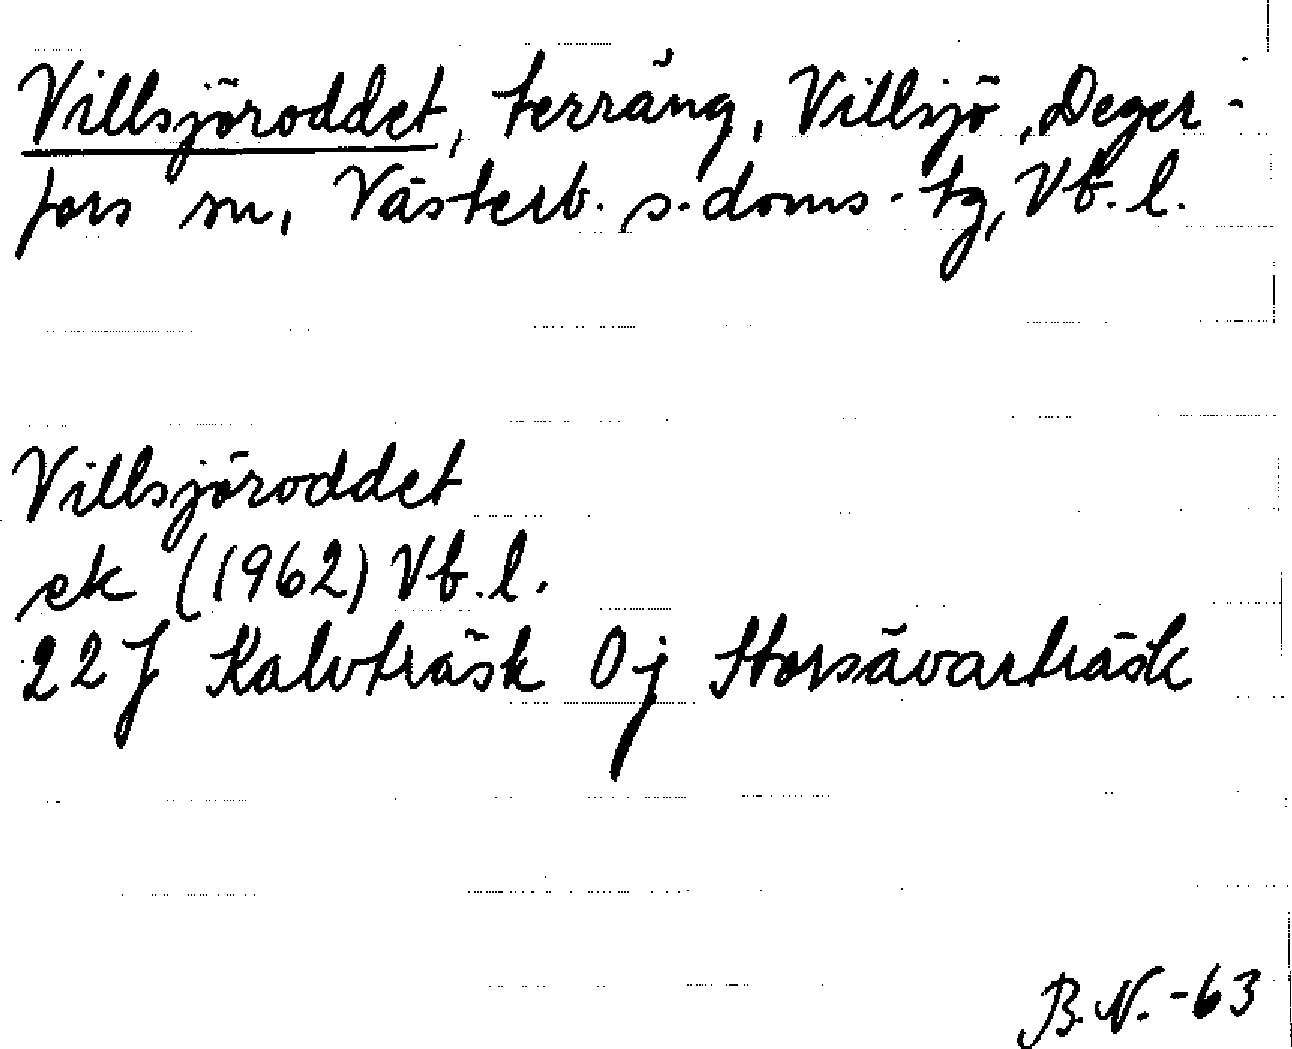 Villsjöroddet, terräng, Villsjö, Deger-
fors sn, Västerb. s. doms. tg, Vb. l.
Villsjöroddet
ek (1962) Vb. l.
22 J Kalvträsk 0j Storsävarträsk
B. N. -63